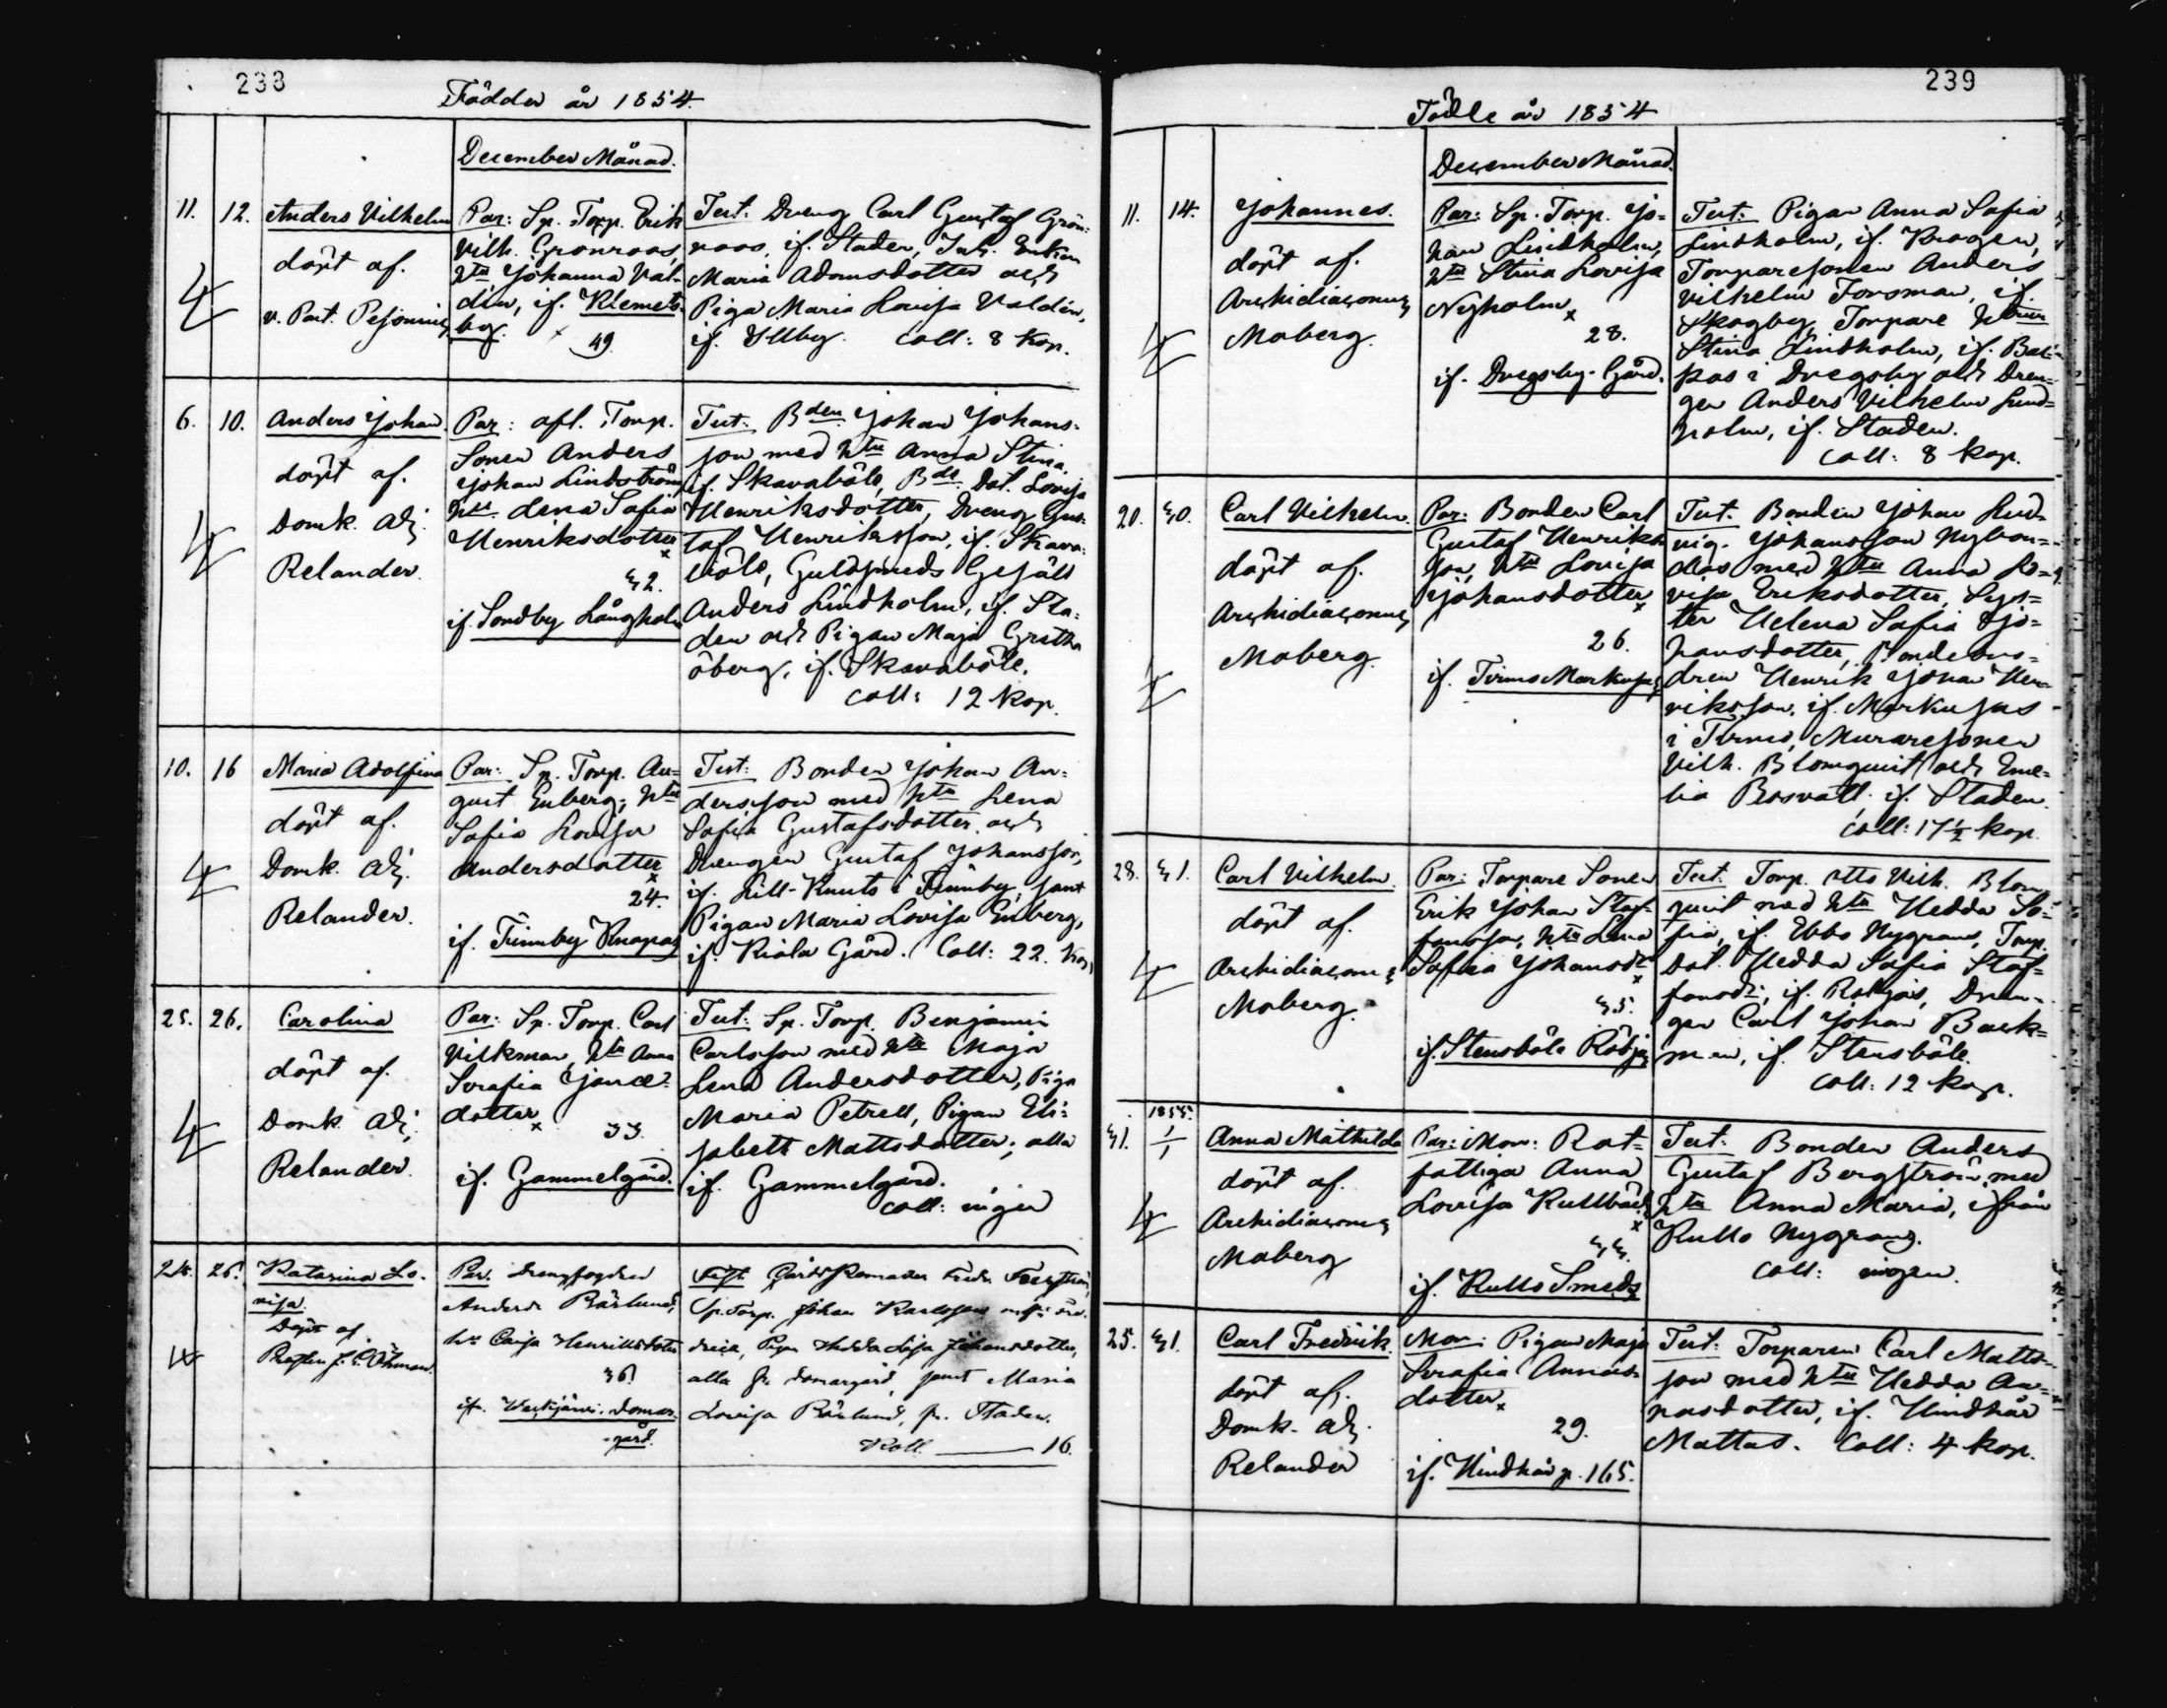 238
Födder år 1854.
December Månad.
11. 12. Anders Vilhelm
döpt af.
v. Past. Pesonius
Par: Sp. Torp. Erik
Vilh. Grönroos,
htu Johanna Val-
din, if. Klemets-
by. x
49
Test: Dreng Carl Gustaf Grön-
roos, if. Staden, Inh. Enkan
Maria Adamsdotter och
Piga Maria Lovisa Valdén,
if. Illby. Coll: 8 Kop.
6. 10. Anders Johan.
döpt af.
Domk. Adj.
Relander.
Par: afl. Torp.
Sonen Anders
Johan Lindström,
htu Lena Sofia
Henriksdotter x
32.
if. Sondby Långholm
Test: Bden Johan Johans-
son med htu Anna Stina,
if. Skavaböle, Bde Dot. Lovisa
Henriksdotter, Dreng Gus-
taf Henriksson, if. Skava-
böle, Guldsmeds Gesäll
Anders Lindholm, if. Sta-
den och Pigan Maja Gretha
Öberg, if. Skavaböle.
Coll: 12 Kop.
10. 16 Maria Adolfina
döpt af.
Domk. Adj.
Relander.
Par: Sp. Torp. Au-
gust Enberg, htu
Sofia Lovisa
Andersdotter x
24.
if. Finnby Knapas
Test: Bonden Johan An-
dersson med htu Lena
Sofia Gustafsdotter och
Drengen Gustaf Johansson,
if. Lill-Knuts i Finnby, samt
Pigan Maria Lovisa Enberg,
if. Kiala Gård. Coll: 22. Kop.
25. 26. Carolina
döpt af.
Domk. Adj.
Relander.
Par: Sp. Torp. Carl
Vilkman, htu Anna
Serafia
dotter x
33.
if. Gammelgård.
Test: Sp. Torp. Benjamin
Carlsson med htu Maja
Lena Andersdotter, Piga
Maria Petrell, Pigan Eli-
sabeth Mattsdotter; alla
if. Gammelgård.
Coll: ingen
24. 26. Katarina Lo-
visa.
Döpt af
Prosten Öhman.
Par. Drengfogden
Anders Bärlund,
hu Caisa Henriksdotter
36
ifr. Weckjärvi Domar-
gård.
Test. Fredr.
Sp. Torp. Johan Karlsson
Pigan Hedda Lisa Johansdotter,
alla fr. Domargård, samt Maria
Lovisa Bärlund, fr. Staden.
Koll. 16.
239
Födde år 1854
December Månad.
11. 14. Johannes.
döpt af.
Archidiaconus
Moberg.
Par: Sp. Torp. Jo-
han Lindholm,
htu Stina Lovisa
Nyholm x
28.
if. Dregsby Gård.
Test: Pigan Anna Sofia
Lindholm, if. Krogen,
Torparesonen Anders
Vilhelm Forsman, if.
Skogby, Torpare
Stina Lindholm, if. Bac-
kas i Dregsby och Dren-
gen Anders Vilhelm Lind-
holm, if. Staden.
Coll: 8 Kop.
20. 30. Carl Vilhelm.
döpt af.
Archidiaconus
Moberg.
Par: Bonden Carl
Gustaf Henriks-
son, htu Lovisa
Johansdotter x
26.
if. Tirmo Markusas
Test. Bonden Johan Lud-
vig Johansson Nybon-
das med htu Anna Lo-
visa Eriksdotter, Sys-
ter Helena Sofia Jo-
hansdotter, Bondebro-
dren Henrik Johan Hen-
riksson, if. Markusas
i Tirmo, Muraresonen
Vilh. Blomquist och Eme-
lia Bosvall, if. Staden.
Coll: 17½ Kop.
28. 31. Carl Vilhelm.
döpt af.
Archidiaconus
Moberg.
Par: Torpare Sonen
Erik Johan Staf-
fansson, htu Lena
Sofia Johansdr x
35.
if. Stensböle Röbjas
Test. Torp. Otto Vilh. Blom-
quist med htu Hedda So-
fia, if. Ebbo Nygrans, Torp.
Dot. Hedda Sofia Staf-
fansdr, if. Röbjas, Dren-
gen Carl Johan Back-
man, if. Stensböle.
Coll: 12 Kop.
1855.
31. 1/1 Anna Mathilda
döpt af.
Archidiaconus
Moberg
Par: Mor: Rot-
fattiga Anna
Lovisa Kullbäck x
33.
if. Kullo Smeds
Test: Bonden Anders
Gustaf Bergström med
htu Anna Maria, ifrån
Kullo Nygrans.
Coll: ingen.
25. 31. Carl Fredrik.
döpt af.
Domk. Adj.
Relander
Mor: Pigan Maja
Serafia Annas-
dotter x
29.
if. Hindhår p. 165.
Test: Torparen Carl Matts-
son med htu Hedda An-
nasdotter, if. Hindhår
Mattas. Coll: 4 Kop.